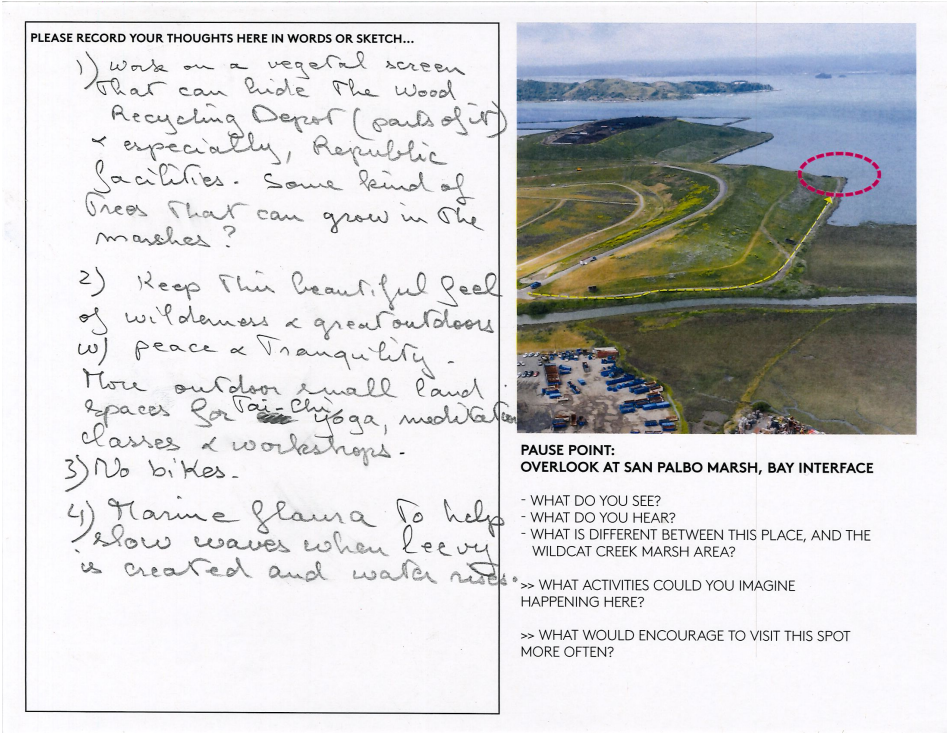 PLEASE RECORD YOUR THOUGHTS HERE IN WORDS OR SKETCH...
1) Work on a vegetal screen
That can hide The Wood
Recycling Depot (parts of it)
& especially, Republic
facilities. Some kind of
Trees That can grow in The
marshes?
2) Keep This beautiful feel
of wilderness & great outdoors
w/ peace & Tranquility.
More outdoor small land
spaces for Tai-Chi yoga, meditation
classes & workshops.
3) No bikes.
4) Marine flaura To help
slow waves when leevy
is created and water rises.
PAUSE POINT:
OVERLOOK AT SAN PALBO MARSH, BAY INTERFACE
- WHAT DO YOU SEE?
- WHAT DO YOU HEAR?
- WHAT IS DIFFERENT BETWEEN THIS PLACE, AND THE
WILDCAT CREEK MARSH AREA?
>> WHAT ACTIVITIES COULD YOU IMAGINE
HAPPENING HERE?
>> WHAT WOULD ENCOURAGE TO VISIT THIS SPOT
MORE OFTEN?